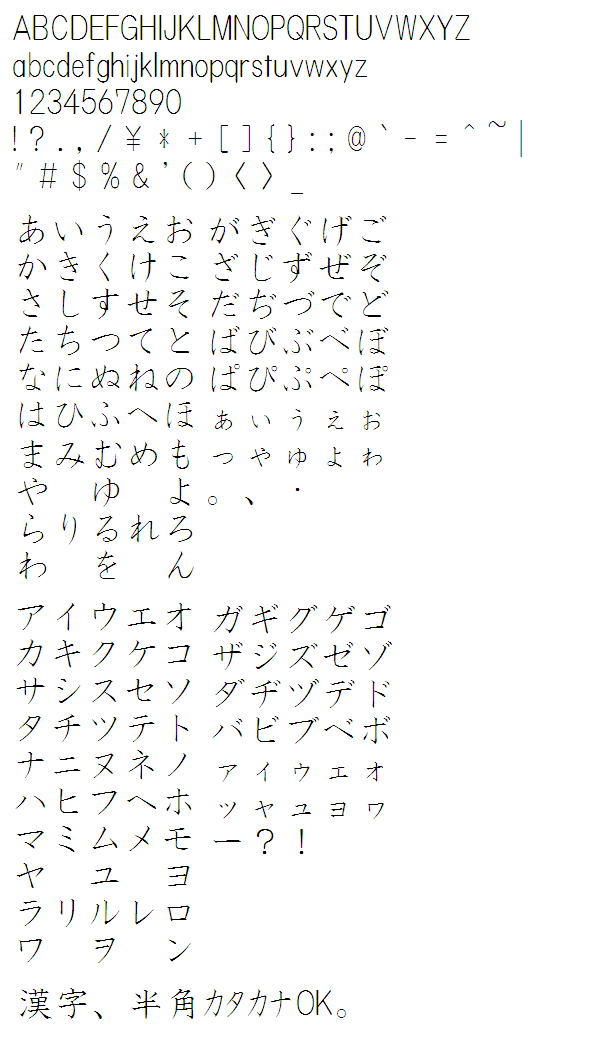 ABCDEFGHIJKLMNOPQRSTUVWXYZ
abcdefghijklmnopqrstuvwxyz
1234567890
! ? . , / ¥ * + [ ] { } : ; @ ` - = ^ ~ |
" # $ % & ' ( ) 〈 〉 _
あいうえお がぎぐげご
かきくけこ ざじずぜぞ
さしすせそ だぢづでど
たちつてと ばびぶべぼ
なにぬねの ぱぴぷぺぽ
はひふへほ ぁぃぅぇぉ
まみむめも っゃゅょゎ
や ゆ よ 。、・
らりるれろ
わ を ん
アイウエオ ガギグゲゴ
カキクケコ ザジズゼゾ
サシスセソ ダヂヅデド
タチツテト バビブベボ
ナニヌネノ ァィゥェォ
ハヒフヘホ ッャュョヮ
マミムメモ ー?!
ヤ ユ ヨ
ラリルレロ
ワ ヲ ン
漢字、半角カタカナOK。